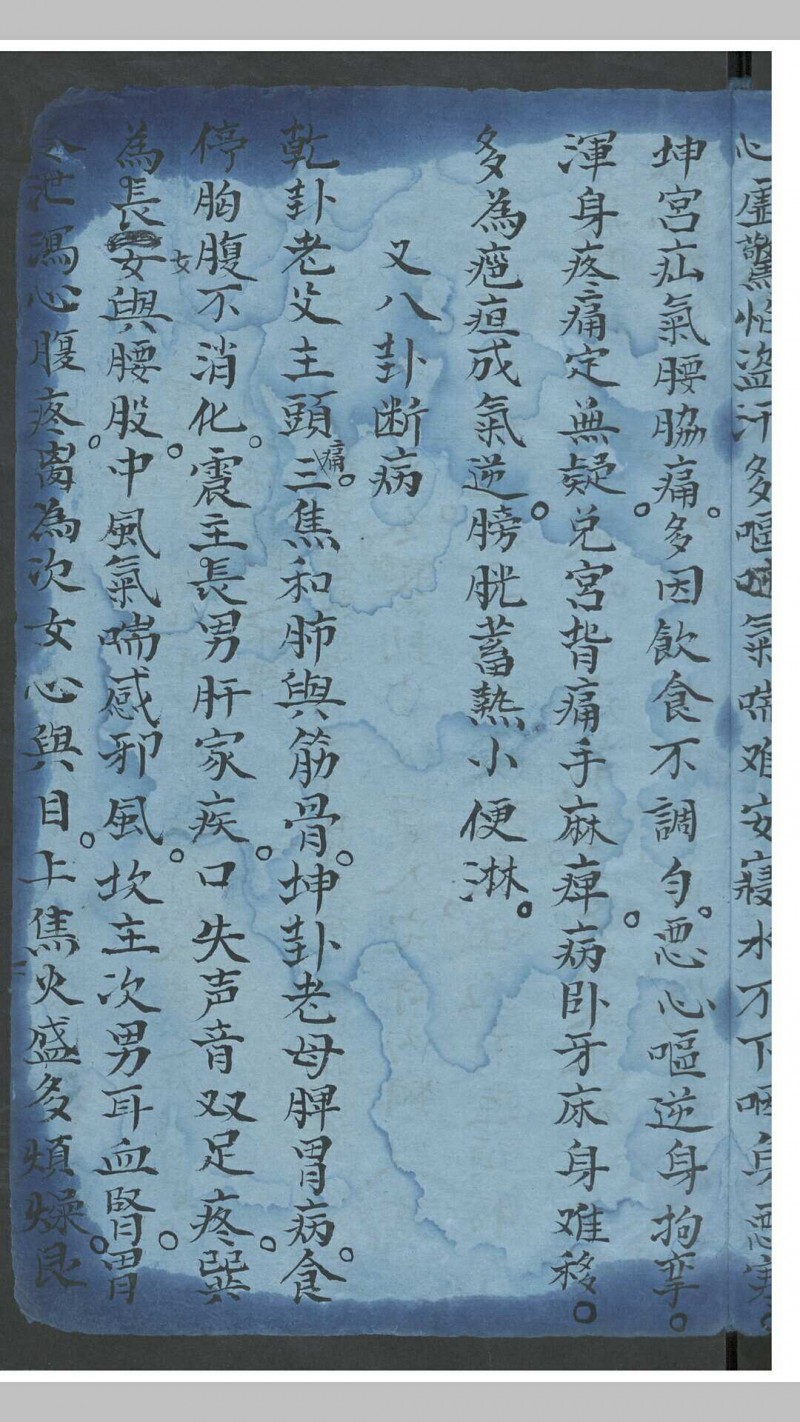 心虛驚怕盜汗多嘔 氣喘难安寢水不下咽身惡寒
坤宮疝氣腰脇痛多因飲食不調勻惡心嘔逆身拘孪
渾身疼痛定無疑兑宮背痛手麻痺病卧牙床身难移
多為疤疸成氣逆膀胱蓄熱小便淋
又八卦断病
乾卦老父主頭痛三焦和肺與筋骨坤卦老母脾胃病食
停胸腹不消化震主長男肝家疾口失声音双足疼巽
為長女與腰股中風氣喘感邪風坎主次男耳血腎胃
泄瀉心腹疼离為次女心與目上焦火盛多煩燥艮